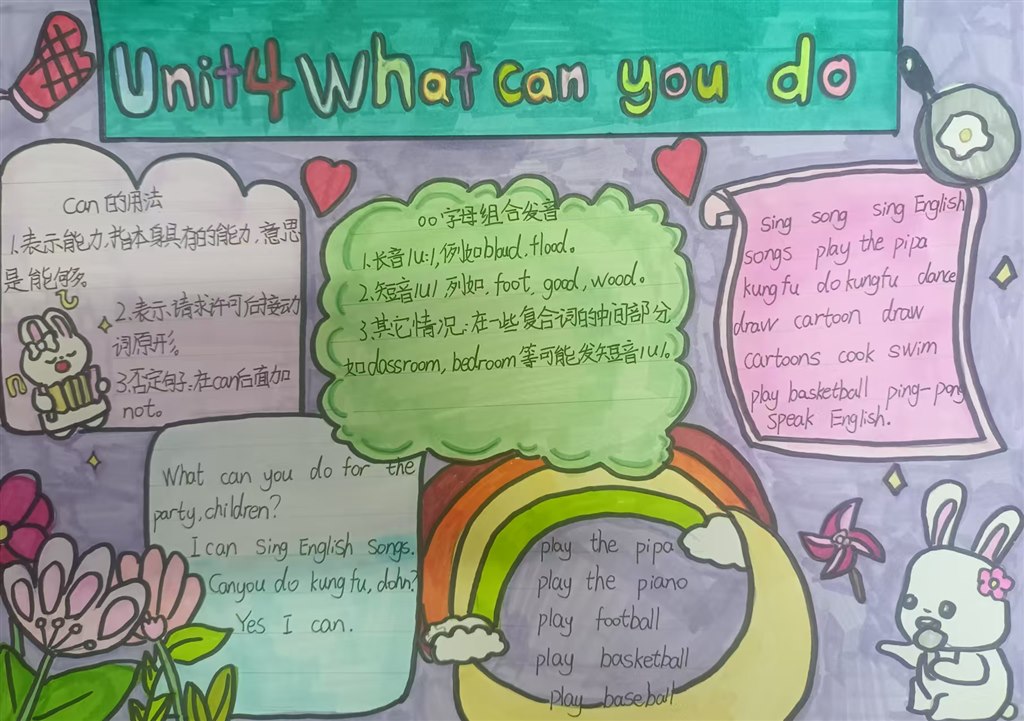 Unit4 What can you do
can 的用法
1.表示能力,指本身具有的能力,意思
是能够。
2.表示请求许可后接动
词原形。
3.否定句:在can后面加
not。
oo字母组合发音
1.长音/u:/,例如bloud,flood。
2.短音/u/列如,foot,good,wood。
3.其它情况:在一些复合词的中间部分
如classroom,bedroom等可能发短音/u/。
sing song sing English
songs play the pipa
kung fu do kungfu dance
draw cartoon draw
cartoons cook swim
play basketball ping-pong
speak English.
What can you do for the
party,children?
I can sing English songs.
Canyou do kung fu,dohn?
Yes I can.
play the pipa
play the piano
play football
play basketball
play baseball